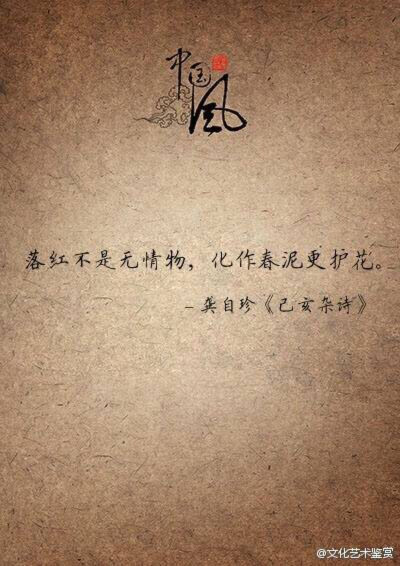 中国风
落红不是无情物，化作春泥更护花。
– 龚自珍《己亥杂诗》
@文化艺术鉴赏